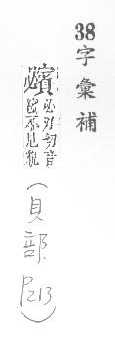 38字彙補
必刃切音
不見貌
(貝部
P213)